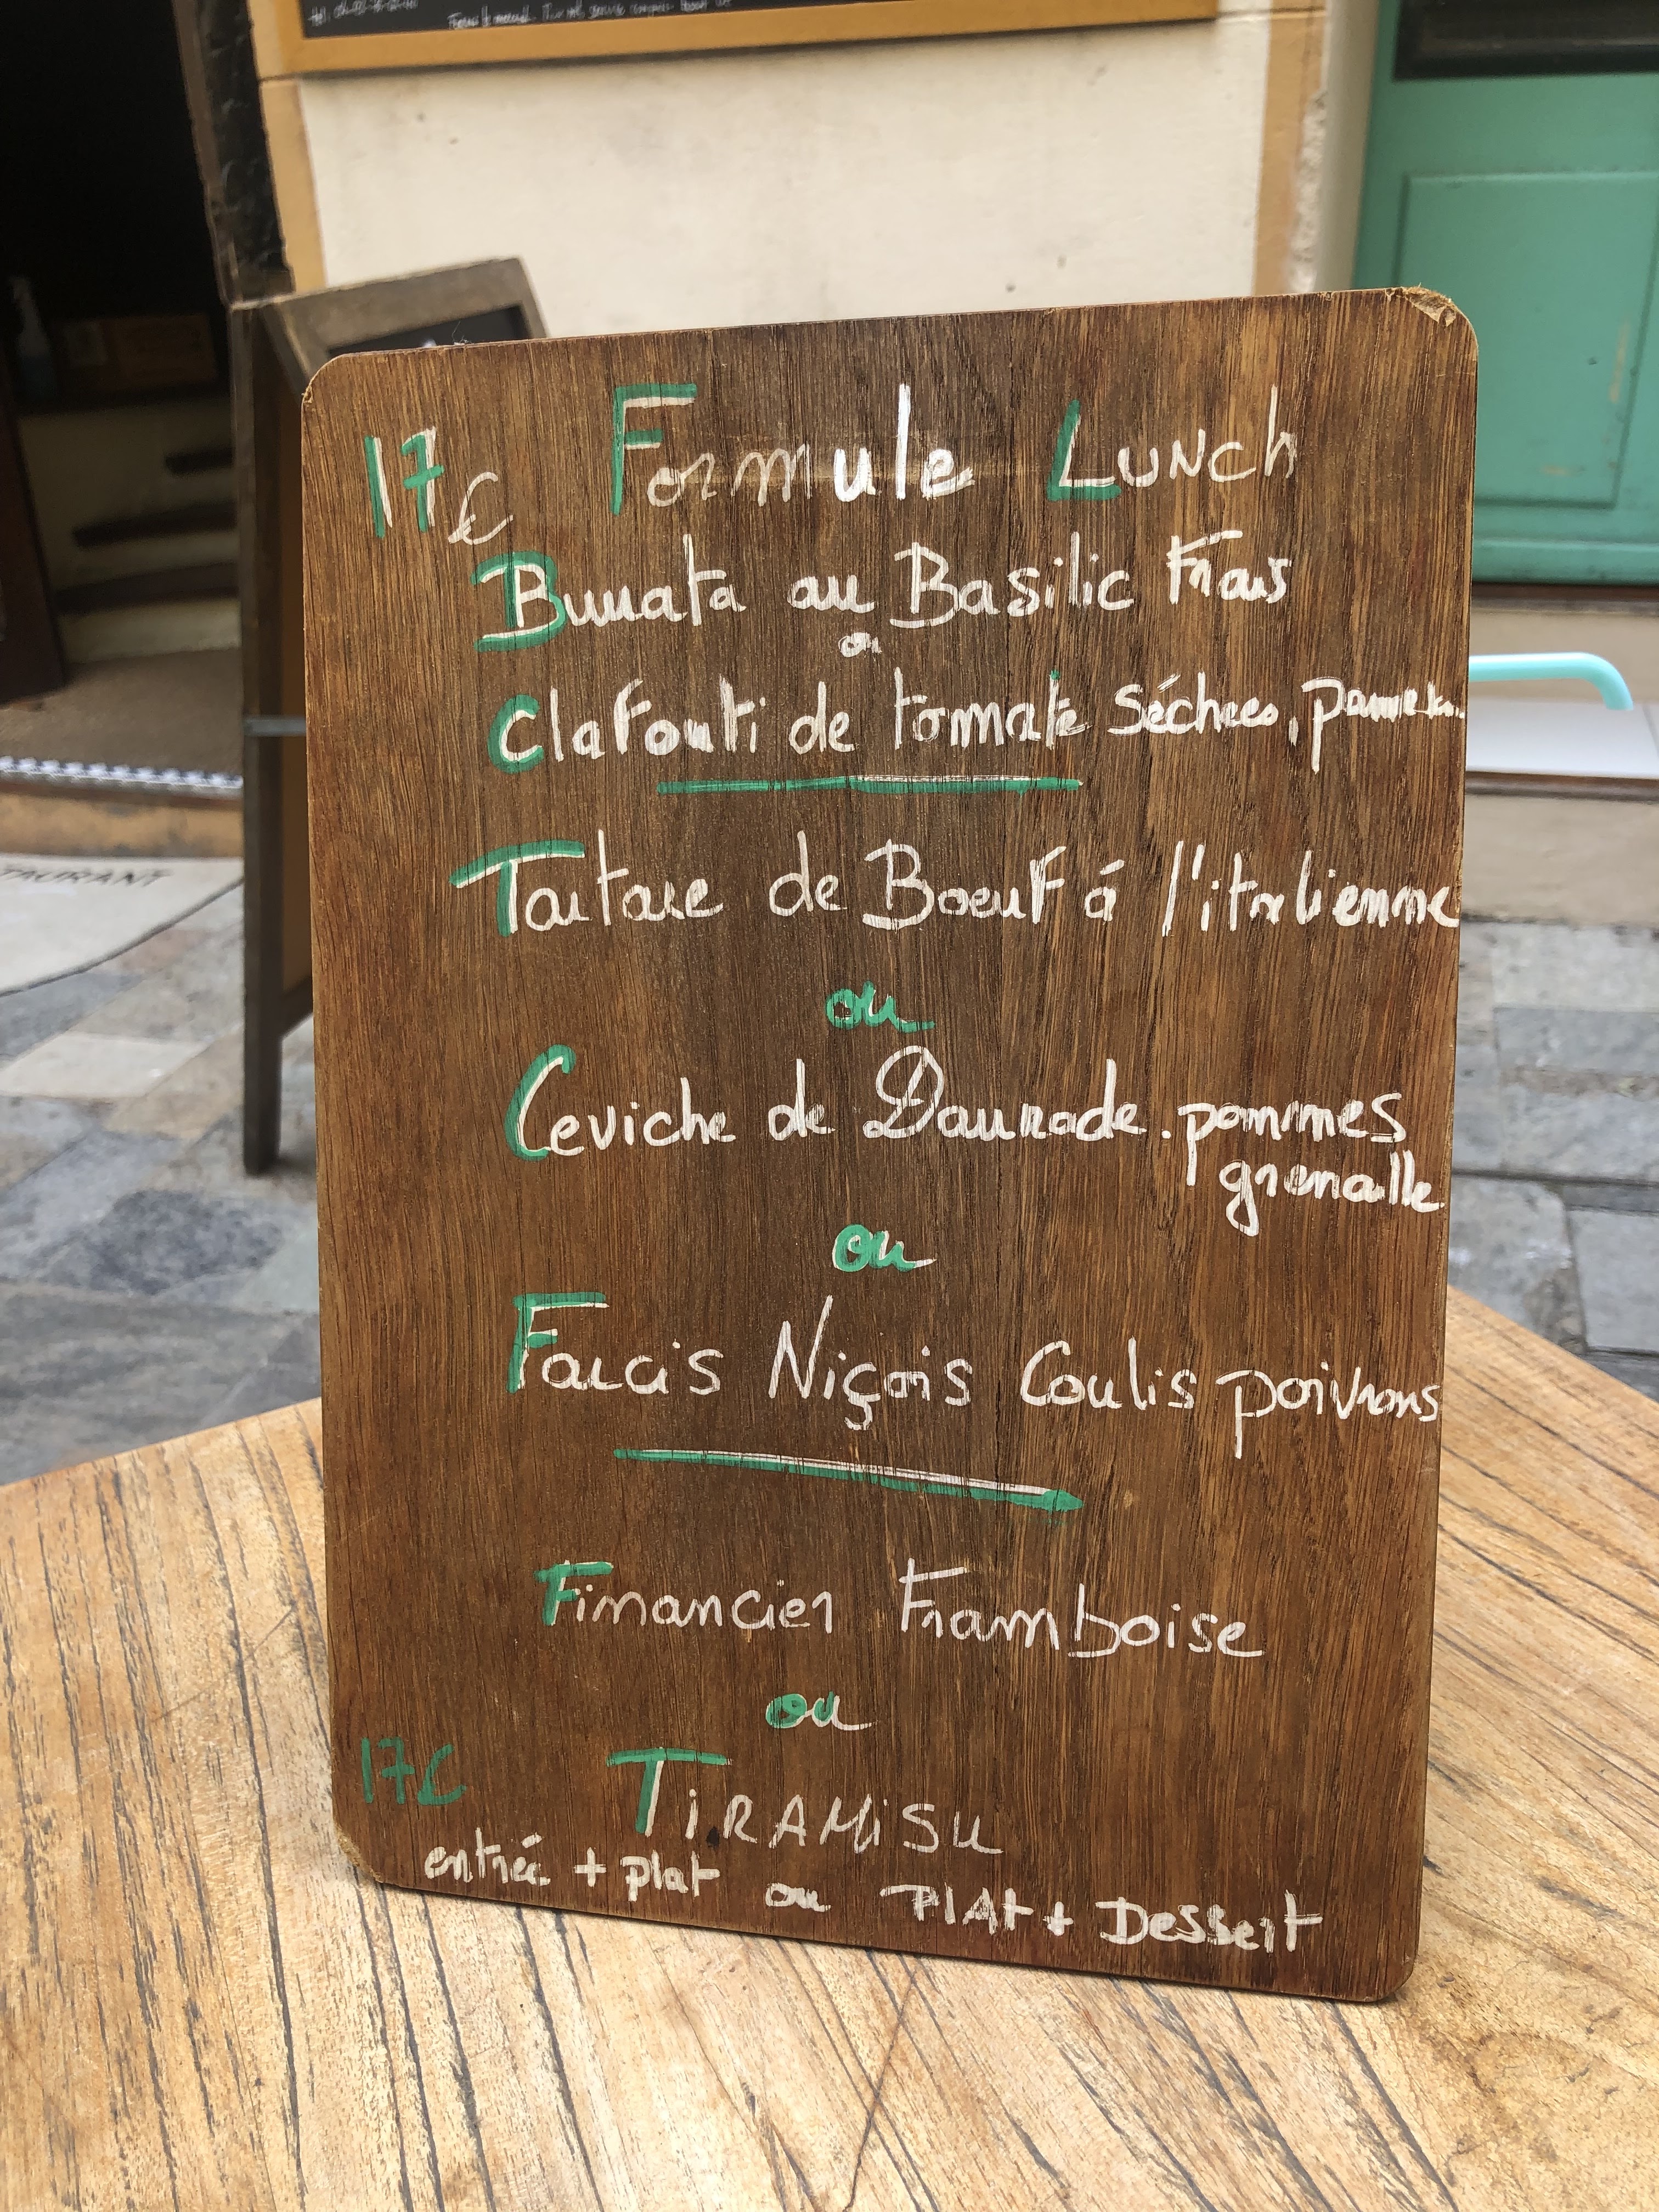 17€ Formule Lunch
Burrata au Basilic Frais
ou
Clafouti de tomate séchées,
Tartare de Boeuf á l'italienne
ou
Ceviche de Daurade. pommes
grenaille
ou
Farcis Niçois Coulis poivrons
Financier Framboise
ou
17€ TiRAMiSu
entrée + plat ou PlAt + Dessert
TAURANT